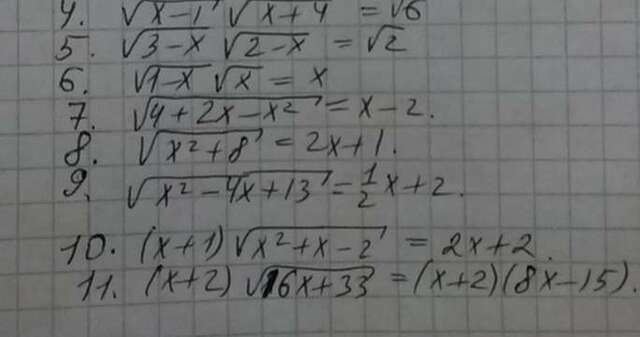 4. √(x-1) √(x+4) = √6
5. √(3-x) √(2-x) = √2
6. √(1-x) √x = x
7. √(4+2x-x²) = x-2.
8. √(x²+8) = 2x+1.
9. √(x²-4x+13) = 1/2 x+2.
10. (x+1) √(x²+x-2) = 2x+2.
11. (x+2) √(16x+33) = (x+2)(8x-15).